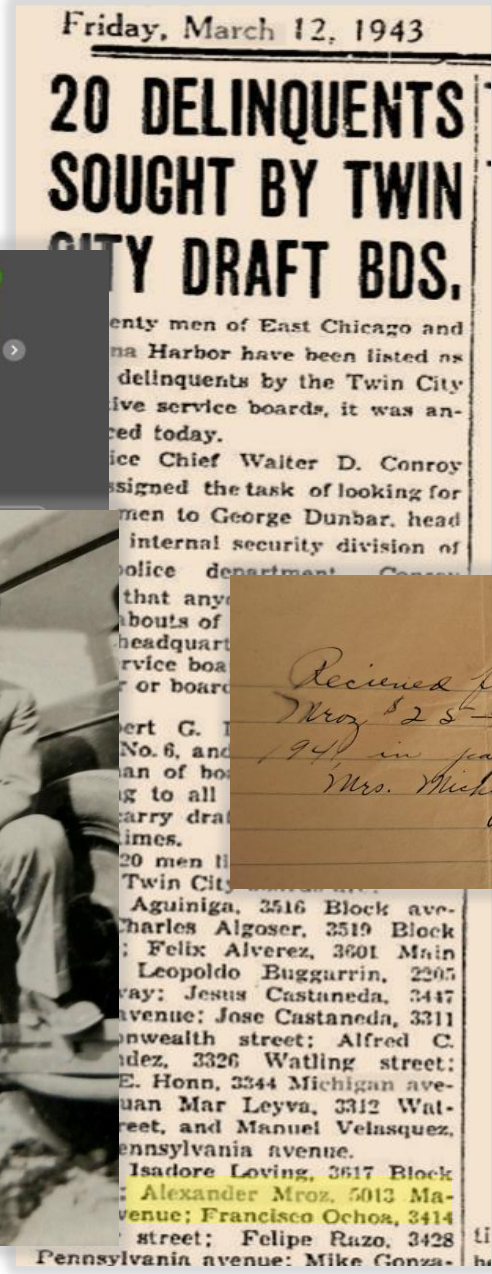 Friday, March 12, 1943
20 DELINQUENTS
SOUGHT BY TWIN
CITY DRAFT BDS.
enty men of East Chicago and
na Harbor have been listed as
delinquents by the Twin City
ive service boards, it was an-
ced today.
ice Chief Walter D. Conroy
ssigned the task of looking for
men to George Dunbar, head
internal security division of
police department. Conroy
that any
bouts of
headquart
rvice boa
r or board
ert G.
No. 6, and
an of bo
g to all
carry dra
imes.
20 men li
Twin City
Aguiniga, 3516 Block ave-
Charles Algoser, 3519 Block
; Felix Alverez, 3601 Main
Leopoldo Buggarrin, 2205
way; Jesus Castaneda, 3447
avenue; Jose Castaneda, 3311
onwealth street; Alfred C.
ndez, 3326 Watling street;
E. Honn, 3344 Michigan ave-
uan Mar Leyva, 3312 Wat-
reet, and Manuel Velasquez,
ennsylvania avenue.
Isadore Loving, 3617 Block
; Alexander Mroz, 5013 Ma-
venue; Francisco Ochoa, 3414
street; Felipe Razo, 3428
Pennsylvania avenue; Mike Gonza-
Recieved f
Mroz $25—
1941 in pa
Mrs. Mich